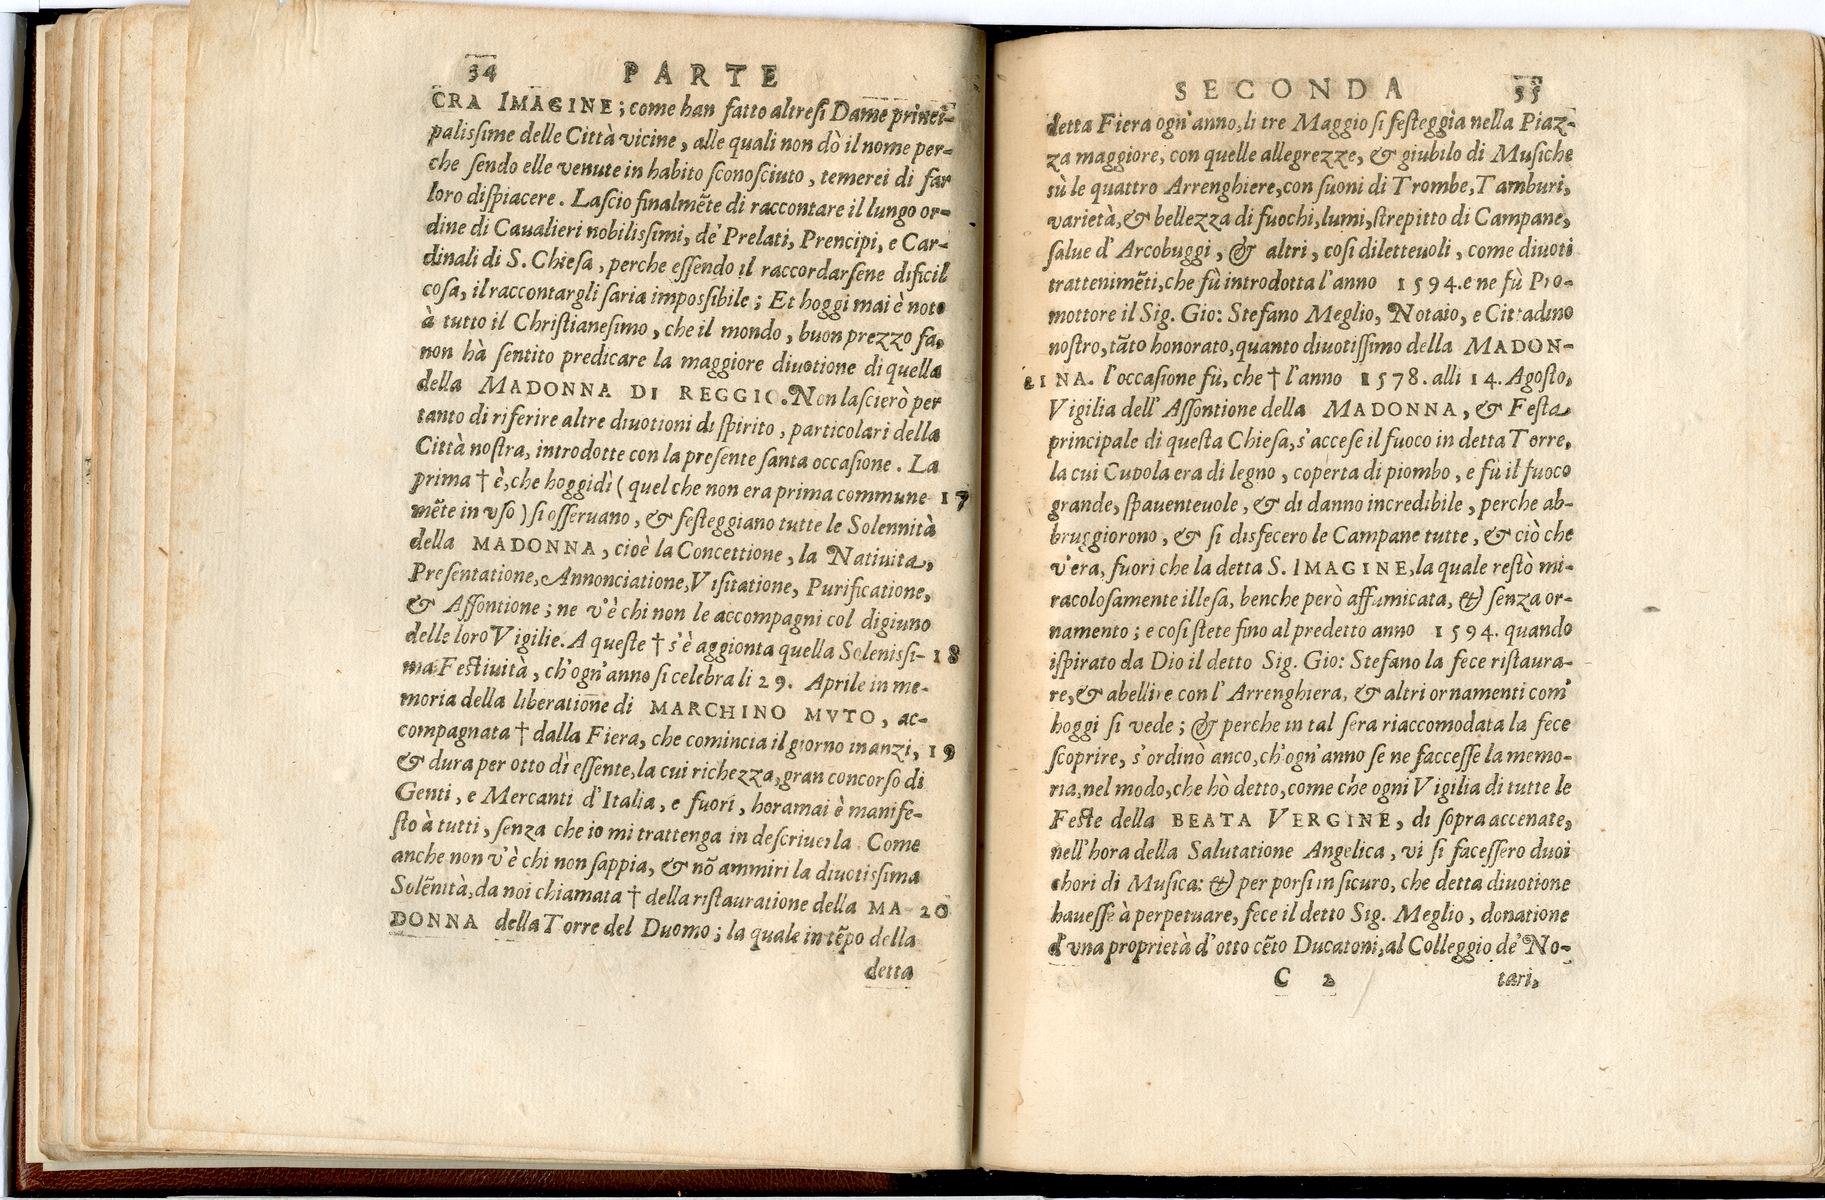 34 PARTE
CRA IMAGINE; come han fatto altresi Dame princi-
palissime delle Città vicine, alle quali non dò il nome per-
che sendo elle venute in habito sconosciuto, temerei di far
loro dispiacere. Lascio finalmẽte di raccontare il lungo or-
dine di Caualieri nobilissimi, de' Prelati, Prencipi, e Car-
dinali di S. Chiesa, perche essendo il raccordarsene dificil
cosa, il raccontargli saria impossibile; Et hoggi mai è noto
à tutto il Christianesimo, che il mondo, buon prezzo fa,
non hà sentito predicare la maggiore diuotione di quella
della MADONNA DI REGGIO. Non lascierò per
tanto di riferire altre diuotioni di spirito, particolari della
Città nostra, introdotte con la presente santa occasione. La
prima † è, che hoggidì (quel che non era prima commune- 17
mẽte in vso) si osseruano, & festeggiano tutte le Solennità
della MADONNA, cioè la Concettione, la Natiuita,
Presentatione, Annonciatione, Visitatione, Purificatione,
& Assontione; ne v'è chi non le accompagni col digiuno
delle loro Vigilie. A queste † s'è aggionta quella Solenissi- 18
ma Festiuità, ch'ogn'anno si celebra li 29. Aprile in me-
moria della liberatiõne di MARCHINO MVTO, ac-
compagnata † dalla Fiera, che comincia il giorno inanzi, 19
& dura per otto dì essente, la cui richezza, gran concorso di
Genti, e Mercanti d'Italia, e fuori, horamai è manife-
sto à tutti, senza che io mi trattenga in descriuerla. Come
anche non v'è chi non sappia, & nõ ammiri la diuotissima
Solẽnità, da noi chiamata † della ristauratione della MA- 20
DONNA della Torre del Duomo; la quale in tẽpo della
detta
SECONDA 35
detta Fiera ogn'anno, li tre Maggio si festeggia nella Piaz-
za maggiore, con quelle allegrezze, & giubilo di Musiche
sù le quattro Arrenghiere, con suoni di Trombe, Tamburi,
varietà, & bellezza di fuochi, lumi, strepitto di Campane,
salue d'Arcobuggi, & altri, cosi diletteuoli, come diuoti
trattenimẽti, che fù introdotta l'anno 1594. e ne fù Pro-
mottore il Sig. Gio: Stefano Meglio, Notaio, e Cittadino
nostro, tãto honorato, quanto diuotissimo della MADON-
21 NA. l'occasione fù, che † l'anno 1578. alli 14. Agosto,
Vigilia dell'Assontione della MADONNA, & Festa
principale di questa Chiesa, s'accese il fuoco in detta Torre,
la cui Cupola era di legno, coperta di piombo, e fù il fuoco
grande, spauenteuole, & di danno incredibile, perche ab-
bruggiorono, & si disfecero le Campane tutte, & ciò che
v'era, fuori che la detta S. IMAGINE, la quale restò mi-
racolosamente illesa, benche però affumicata, & senza or-
namento; e cosi stete fino al predetto anno 1594. quando
ispirato da Dio il detto Sig. Gio: Stefano la fece ristaura-
re, & abellire con l'Arrenghiera, & altri ornamenti com'
hoggi si vede; & perche in tal sera riaccomodata la fece
scoprire, s'ordinò anco, ch'ogn'anno se ne faccesse la memo-
ria, nel modo, che hò detto, come che ogni Vigilia di tutte le
Feste della BEATA VERGINE, di sopra accenate,
nell'hora della Salutatione Angelica, vi si facessero duoi
chori di Musica: & per porsi in sicuro, che detta diuotione
hauesse à perpetuare, fece il detto Sig. Meglio, donatione
d'vna proprietà d'otto cẽto Ducatoni, al Colleggio de' No-
C 2 tari,